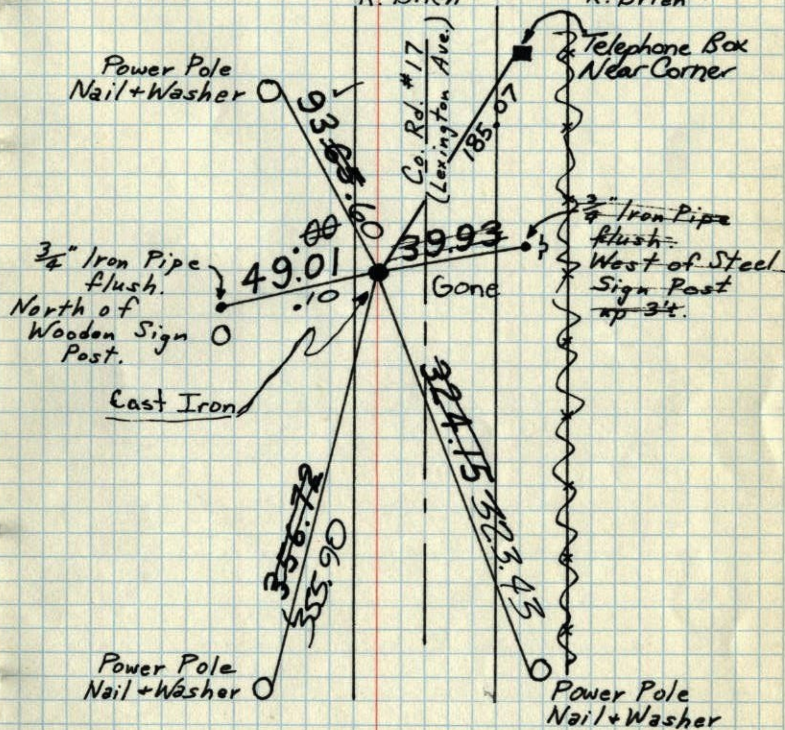 Power Pole
Nail + Washer
93.65
.60
Co. Rd. #17
(Lexington Ave.)
185.07
Telephone Box
Near Corner
3/4" Iron Pipe
flush.
West of Steel
Sign Post
up 3'±.
39.93
Gone
.00
49.01
.10
3/4" Iron Pipe
flush.
North of
Wooden Sign
Post.
Cast Iron
356.72
355.90
324.15
323.43
Power Pole
Nail + Washer
Power Pole
Nail + Washer